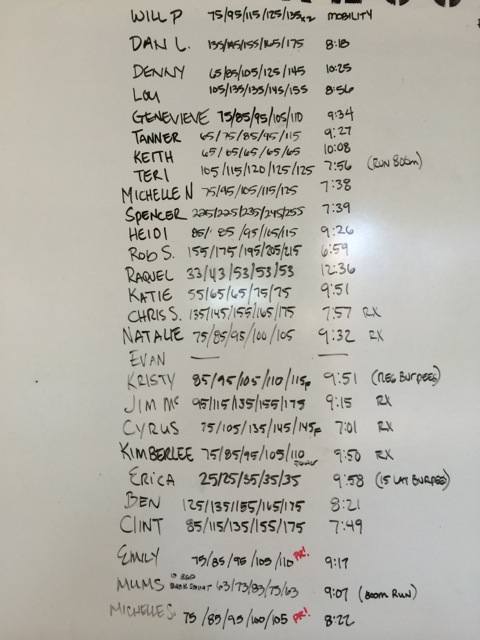 WILL P 75/95/115/125/135x2 MOBILITY
DAN L. 135/145/155/165/175 8:18
DENNY 65/85/105/125/145 10:25
LOU 105/135/135/145/155 8:56
GENEVIEVE 75/85/95/105/110 9:34
TANNER 65/75/85/95/115 9:27
KEITH 65/65/65/65/65 10:08
TERI 105/115/120/125/125 7:56 (RUN 800m)
MICHELLE N 75/95/105/115/125 7:38
SPENCER 225/225/235/245/255 7:39
HEIDI 85/ 85 /95/105/115 9:26
ROB S. 155/175/195/205/215 6:59
RAQUEL 33/43/53/53/53 12:36
KATIE 55/65/65/75/75 9:51
CHRIS S. 135/145/155/165/175 7:57 RX
NATALIE 75/85/95/100/105 9:32 RX
EVAN — —
KRISTY 85/95/105/110/115F 9:51 (REG BURPEES)
JIM MC 95/115/135/155/175 9:15 RX
CYRUS 75/105/135/145/145F 7:01 RX
KIMBERLEE 75/85/95/105/110 9:50 RX
ERICA 25/25/35/35/35 9:58 (15 LAT BURPEE)
BEN 125/135/155/165/175 8:21
CLINT 85/115/135/155/175 7:49
EMILY 75/85/95/105/110 PR! 9:17
MUMS 10 REP BACK SQUAT 63/73/83/73/63 9:07 (800m RUN)
MICHELLE S. 75/85/95/100/105 PR! 8:22